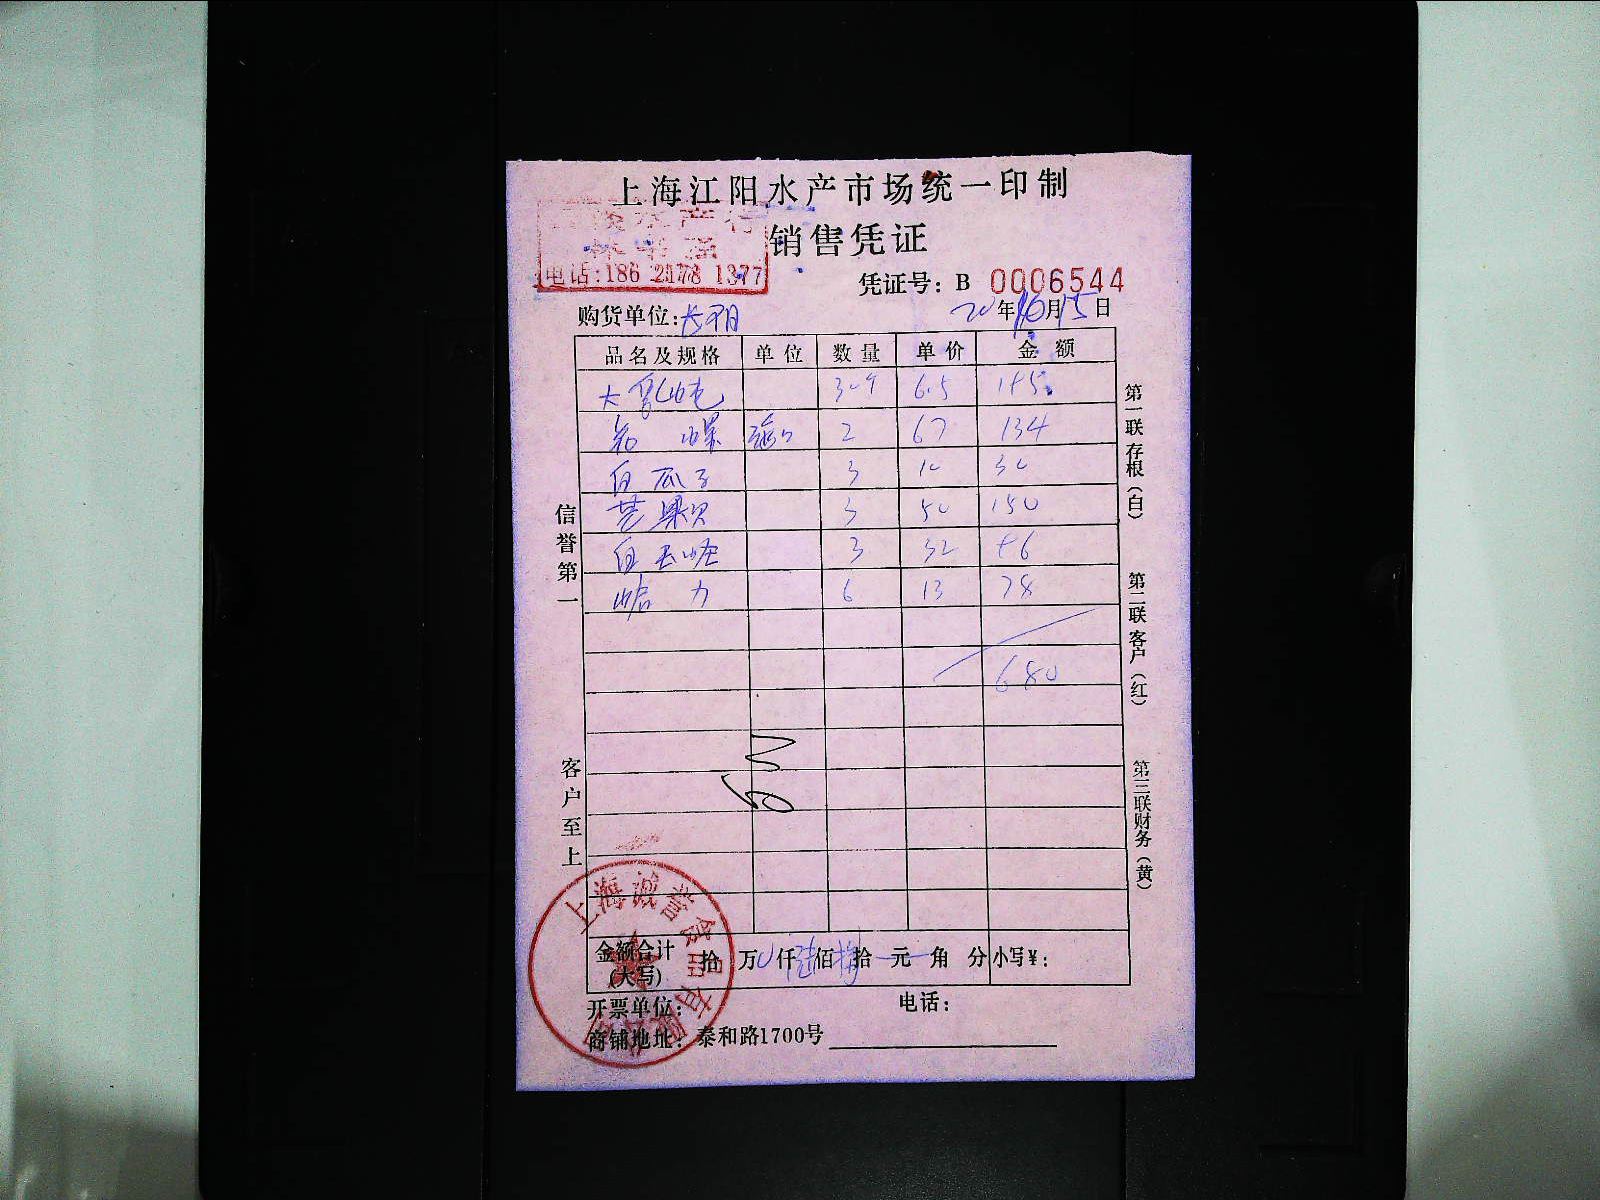 上海江阳水产市场统一印制
水产行
销售凭证
电话:186 2178 1377
凭证号: B 0006544
购货单位:
20年10月15日
品名及规格 单位 数量 单价 金额
6.5
2 67 134
白瓜子 3 10 30
芒果贝 3 50 150
白玉 3 32 96
力 6 13 78
680
信誉第一
客户至上
第一联存根(白)
第二联客户(红)
第三联财务(黄)
金额合计(大写) 拾 万 仟 陆佰 捌拾 元 角 分 小写¥:
开票单位: 电话:
商铺地址: 泰和路1700号
上海诚誉食品有限公司